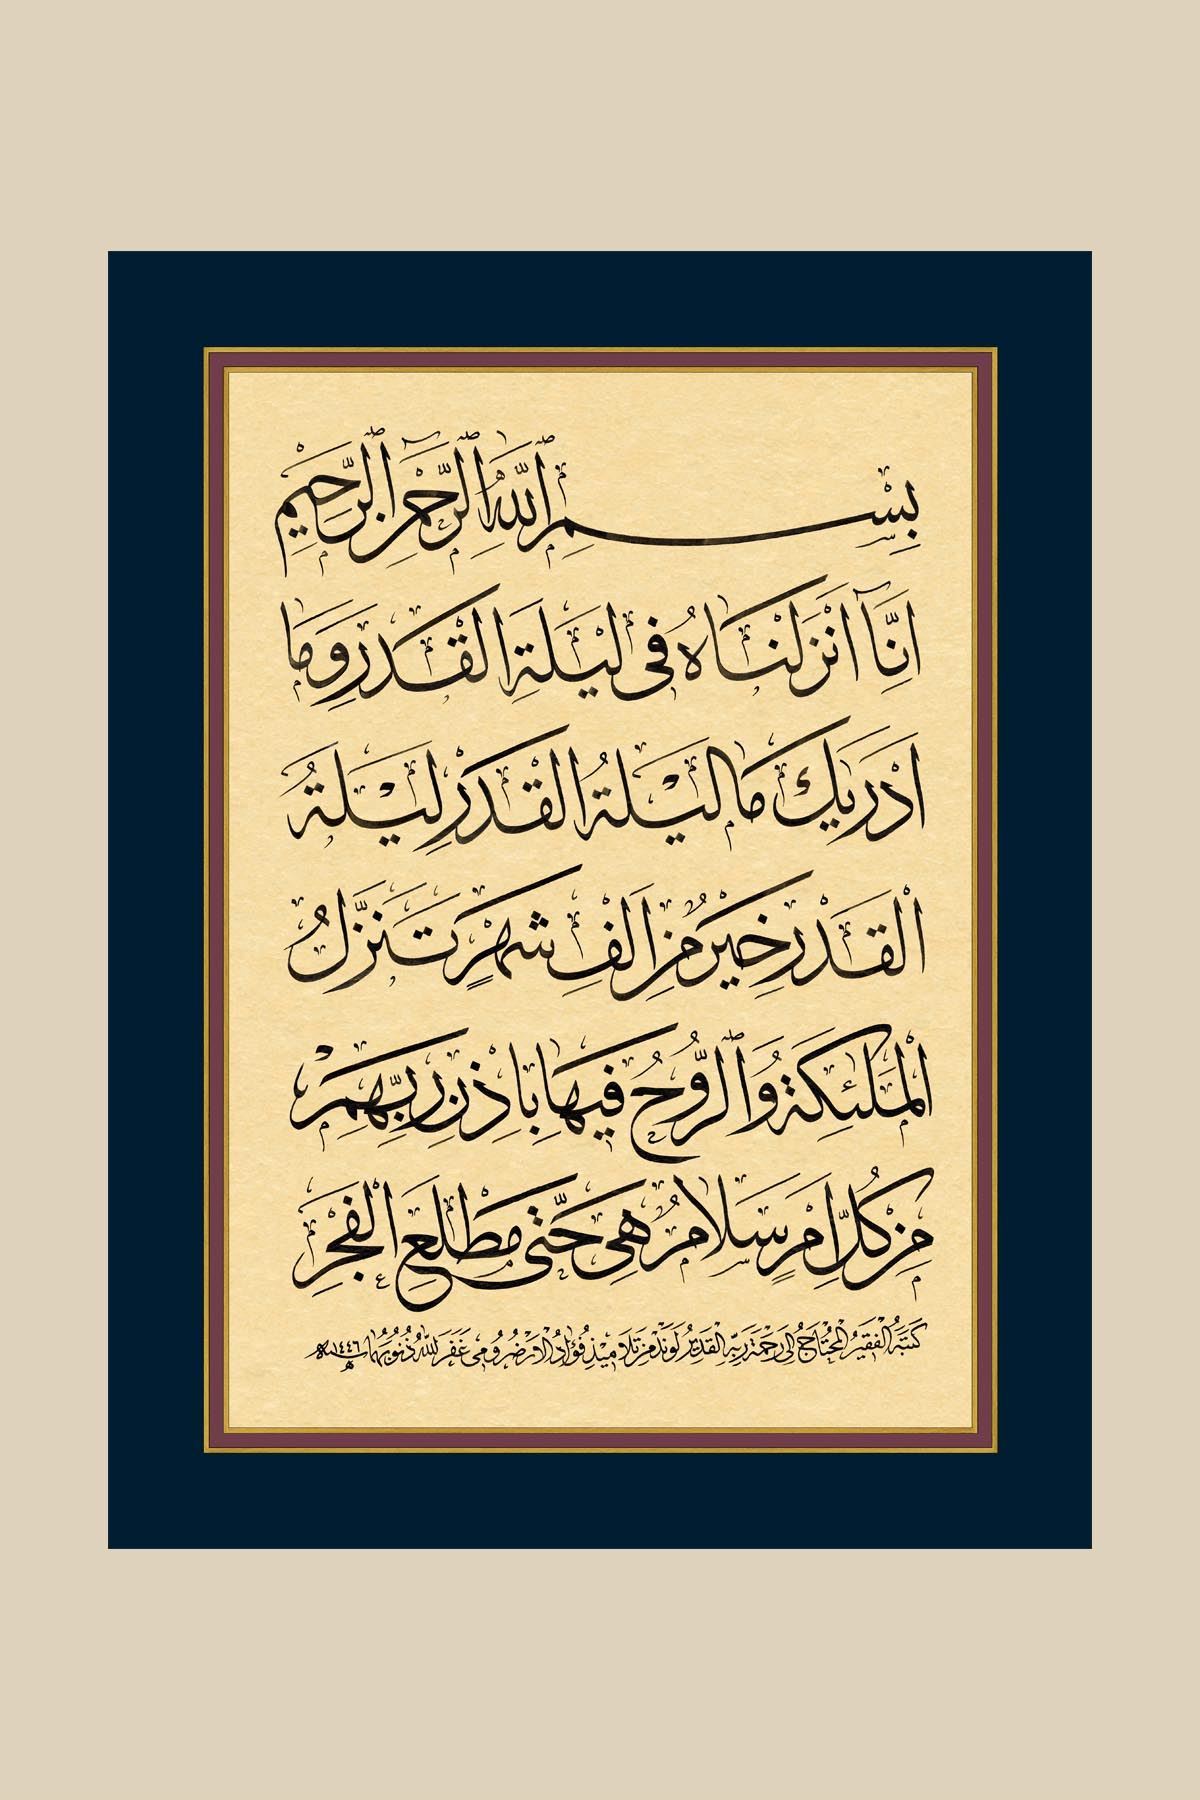 بِسْمِ اللّٰهِ الرَّحْمٰنِ الرَّحِيمِ
اِنَّآ اَنْزَلْنَاهُ فِى لَيْلَةِ الْقَدْرِ وَمَا
اَدْرٰيكَ مَا لَيْلَةُ الْقَدْرِ لَيْلَةُ
الْقَدْرِ خَيْرٌ مِنْ اَلْفِ شَهْرٍ تَنَزَّلُ
الْمَلٰئِكَةُ وَالرُّوحُ فِيهَا بِاِذْنِ رَبِّهِمْ
مِنْ كُلِّ اَمْرٍ سَلَامٌ هِىَ حَتّٰى مَطْلَعِ الْفَجْرِ
كَتَبَهُ الْفَقِيرُ الْمُحْتَاجُ اِلٰى رَحْمَةِ رَبِّهِ الْقَدِيرُ لَوَنْد مِنْ تَلَامِيذِ فُؤَادُ الْاَرْضُرُومِى غَفَرَ اللّٰهُ ذُنُوبَهُمَا ١٤٤٦ هـ